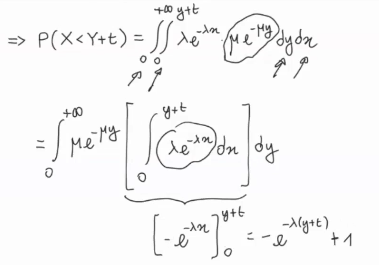 => P(X<Y+t) = ∫₀^{+∞} ∫₀^{y+t} λe^{-λx} · μe^{-μy} dy dx
= ∫₀^{+∞} μe^{-μy} [ ∫₀^{y+t} λe^{-λx} dx ] dy
[-e^{-λx}]₀^{y+t} = -e^{-λ(y+t)} + 1